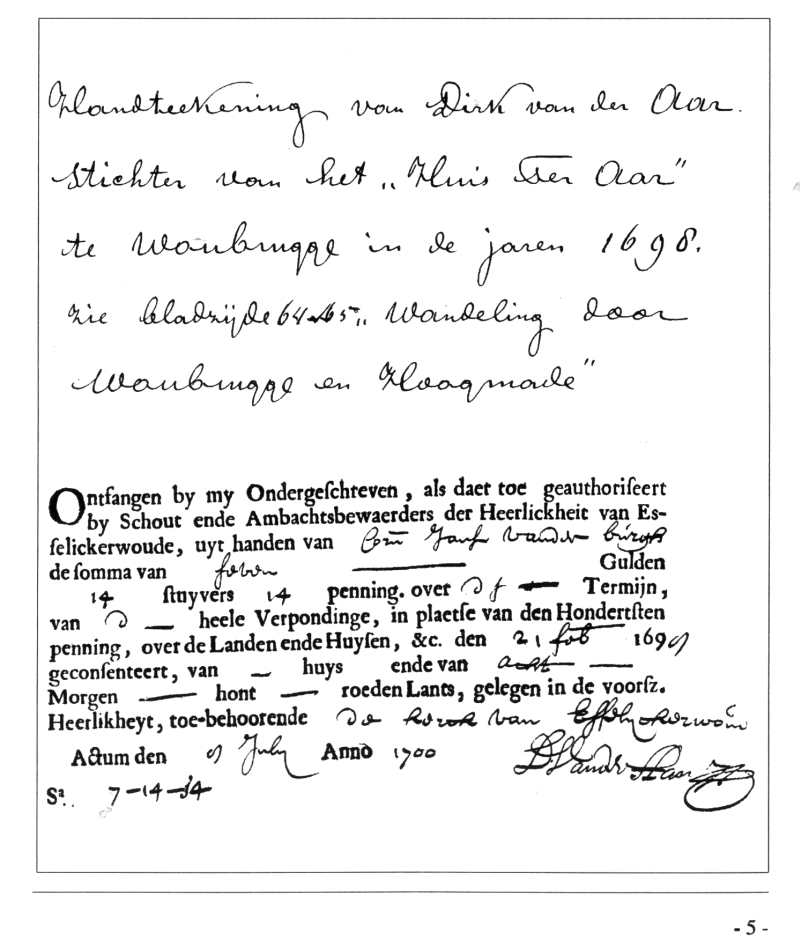 Handteekening van Dirk van der Aar.
Stichter van het „Huis Ter Aar”
te Woubrugge in de jaren 1698.
zie bladzijde 64-65 „Wandeling door
Woubrugge en Hoogmade”
Ontfangen by my Ondergeſchreven, als daer toe geauthoriſeert
by Schout ende Ambachtsbewaerders der Heerlickheit van Es-
ſelickerwoude, uyt handen van Corn Jansz vander burgh
de ſomma van ſeven Gulden
14 ſtuyvers 14 penning. over Termijn,
van heele Verpondinge, in plaetſe van den Hondertſten
penning, over de Landen ende Huyſen, &c. den 21 feb 1699
geconſenteert, van — huys ende van acht —
Morgen — hont — roeden Lants, gelegen in de voorſz.
Heerlikheyt, toe-behoorende de kerck van Eſſelyckerwou
Actum den 9 July Anno 1700
D Vander Aar
Sª. 7-14-14
- 5 -